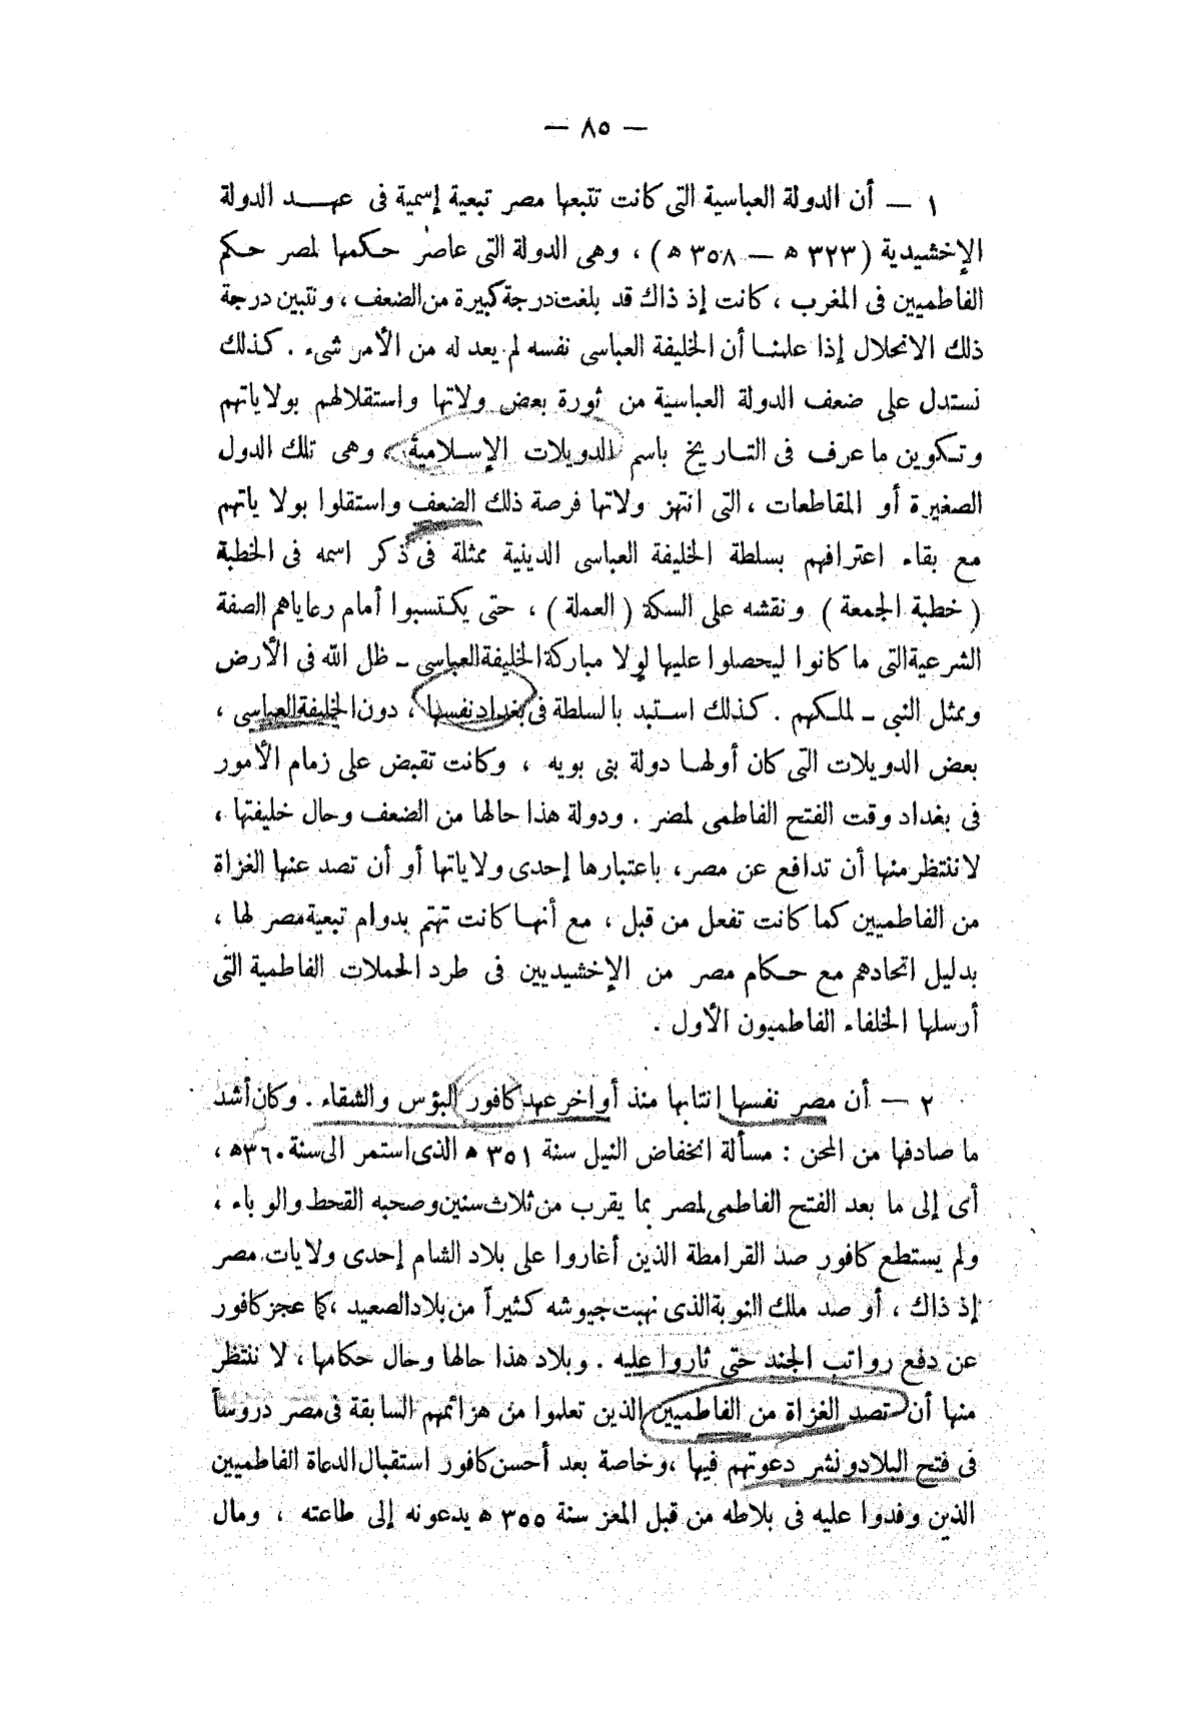 — ٨٥ —
١ — أن الدولة العباسية التى كانت تتبعها مصر تبعية إسمية فى عهد الدولة
الإخشيدية ( ٣٢٣ ھ — ٣٥٨ ھ ) ، وهى الدولة التى عاصر حكمها لمصر حكم
الفاطميين فى المغرب ، كانت إذ ذاك قد بلغت درجة كبيرة من الضعف ، ونتبين درجة
ذلك الانحلال إذا علمنا أن الخليفة العباسى نفسه لم يعد له من الأمر شىء . كذلك
نستدل على ضعف الدولة العباسية من ثورة بعض ولاتها واستقلالهم بولاياتهم
وتكوين ما عرف فى التاريخ باسم «الدويلات الإسلامية» ، وهى تلك الدول
الصغيرة أو المقاطعات ، التى انتهز ولاتها فرصة ذلك الضعف واستقلوا بولا ياتهم
مع بقاء اعترافهم بسلطة الخليفة العباسى الدينية ممثلة فى ذكر اسمه فى الخطبة
( خطبة الجمعة ) ونقشه على السكة ( العملة ) ، حتى يكتسبوا أمام رعاياهم الصفة
الشرعية التى ما كانوا ليحصلوا عليها لولا مباركة الخليفة العباسى ـ ظل الله فى الأرض
وممثل النبى ـ لملكهم . كذلك استبد بالسلطة فى بغداد نفسها ، دون الخليفة العباسى ،
بعض الدويلات التى كان أولها دولة بنى بويه ، وكانت تقبض على زمام الأمور
فى بغداد وقت الفتح الفاطمى لمصر . ودولة هذا حالها من الضعف وحال خليفتها ،
لا ننتظر منها أن تدافع عن مصر ، باعتبارها إحدى ولاياتها أو أن تصد عنها الغزاة
من الفاطميين كما كانت تفعل من قبل ، مع أنها كانت تهتم بدوام تبعية مصر لها ،
بدليل اتحادهم مع حكام مصر من الإخشيديين فى طرد الحملات الفاطمية التى
أرسلها الخلفاء الفاطميون الأول .
٢ — أن مصر نفسها انتابها منذ أواخر عهد كافور البؤس والشقاء . وكان أشد
ما صادفها من المحن : مسألة انخفاض النيل سنة ٣٥١ ھ الذى استمر الى سنة ٣٦٠ھ ،
أى إلى ما بعد الفتح الفاطمى لمصر بما يقرب من ثلاث سنين وصحبه القحط والوباء ،
ولم يستطع كافور صد القرامطة الذين أغاروا على بلاد الشام إحدى ولايات مصر
إذ ذاك ، أو صد ملك النوبة الذى نهبت جيوشه كثيراً من بلاد الصعيد ، كما عجز كافور
عن دفع رواتب الجند حتى ثاروا عليه . وبلاد هذا حالها وحال حكامها ، لا ننتظر
منها أن تصد الغزاة من الفاطميين الذين تعلموا من هزائمهم السابقة فى مصر دروساً
فى فتح البلاد ونشر دعوتهم فيها ، وخاصة بعد أحسن كافور استقبال الدعاة الفاطميين
الذين وفدوا عليه فى بلاطه من قبل المعز سنة ٣٥٥ ھ يدعونه إلى طاعته ، ومال